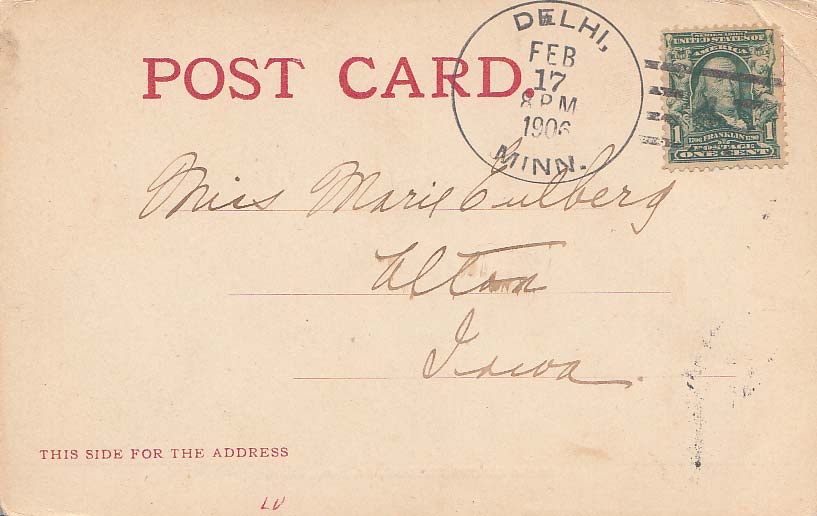 POST CARD.
DELHI,
FEB
17
8 PM
1906
MINN.
SERIES 1902
UNITED STATES OF
AMERICA
1 1706 FRANKLIN 1790 1
POSTAGE
ONE CENT
Miss Marie Culberg
Alton
Iowa.
THIS SIDE FOR THE ADDRESS